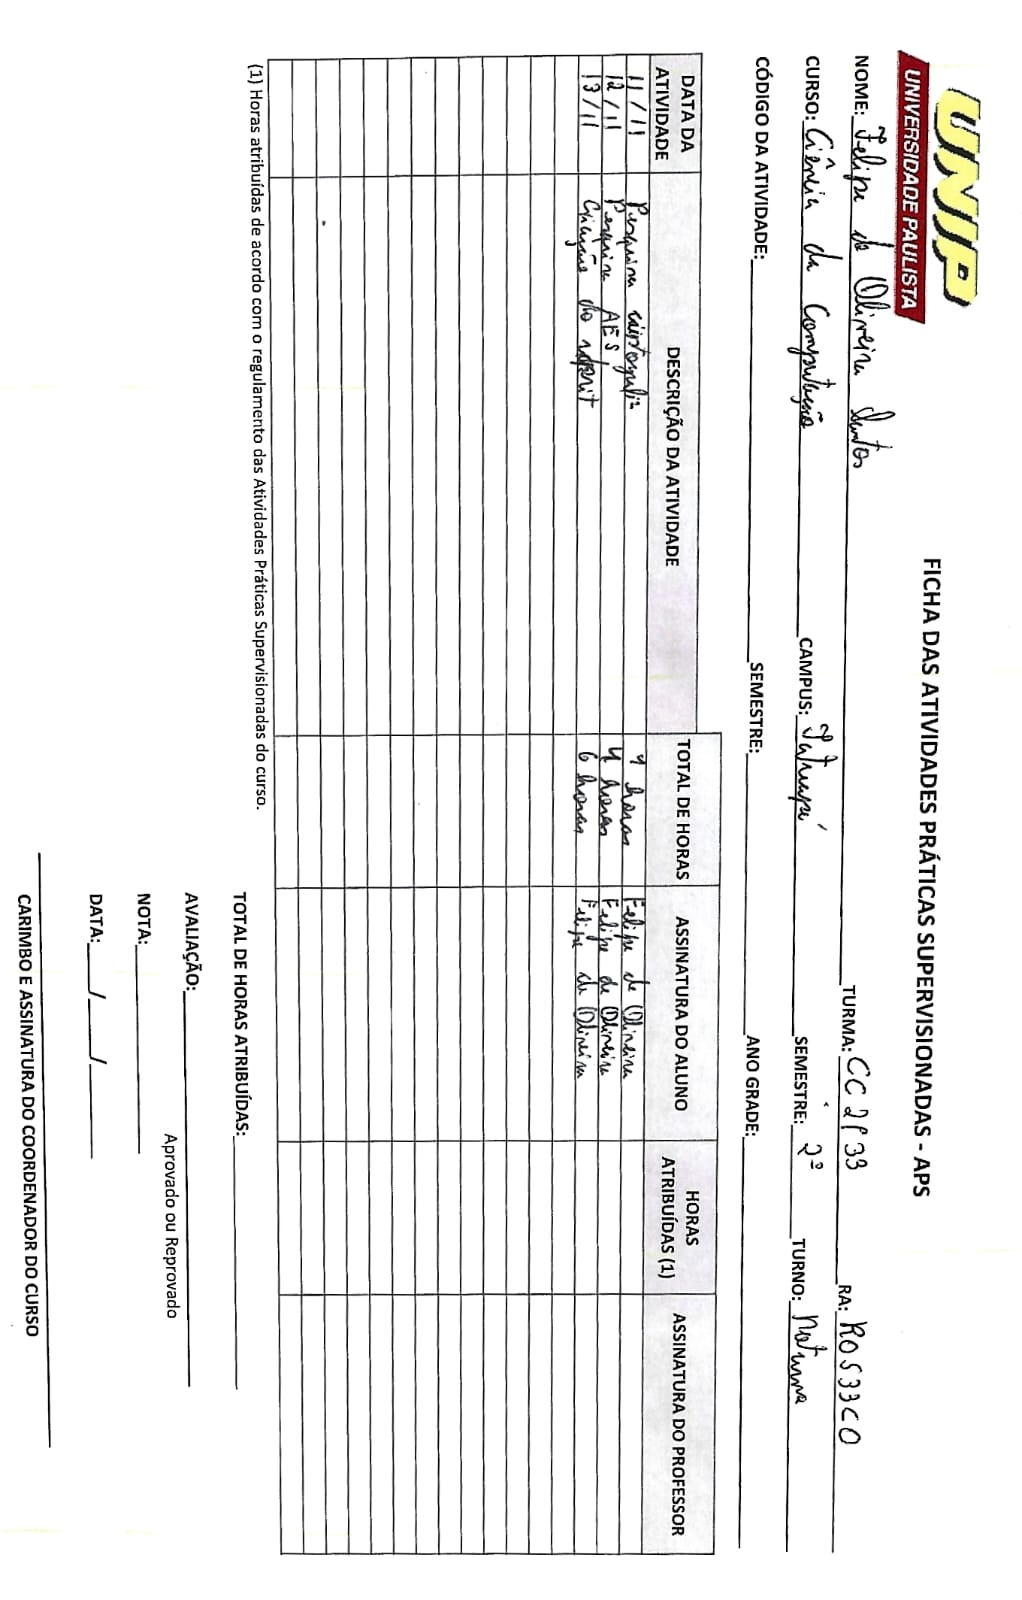 UNIP
UNIVERSIDADE PAULISTA
FICHA DAS ATIVIDADES PRÁTICAS SUPERVISIONADAS - APS
NOME: Felipe de Oliveira Santos TURMA: CC2P33 RA: R0533C0
CURSO: Ciência da Computação CAMPUS: Tatuapé SEMESTRE: 2º TURNO: Noturno
CÓDIGO DA ATIVIDADE: SEMESTRE: ANO GRADE:
DATA DA ATIVIDADE DESCRIÇÃO DA ATIVIDADE TOTAL DE HORAS ASSINATURA DO ALUNO HORAS ATRIBUÍDAS (1) ASSINATURA DO PROFESSOR
11/11 Pesquisa 4 horas Felipe de Oliveira
12/11 Pesquisa AES 4 horas Felipe de Oliveira
13/11 Criação do 6 horas Felipe de Oliveira
(1) Horas atribuídas de acordo com o regulamento das Atividades Práticas Supervisionadas do curso.
TOTAL DE HORAS ATRIBUÍDAS:
AVALIAÇÃO:
Aprovado ou Reprovado
NOTA:
DATA: / /
CARIMBO E ASSINATURA DO COORDENADOR DO CURSO